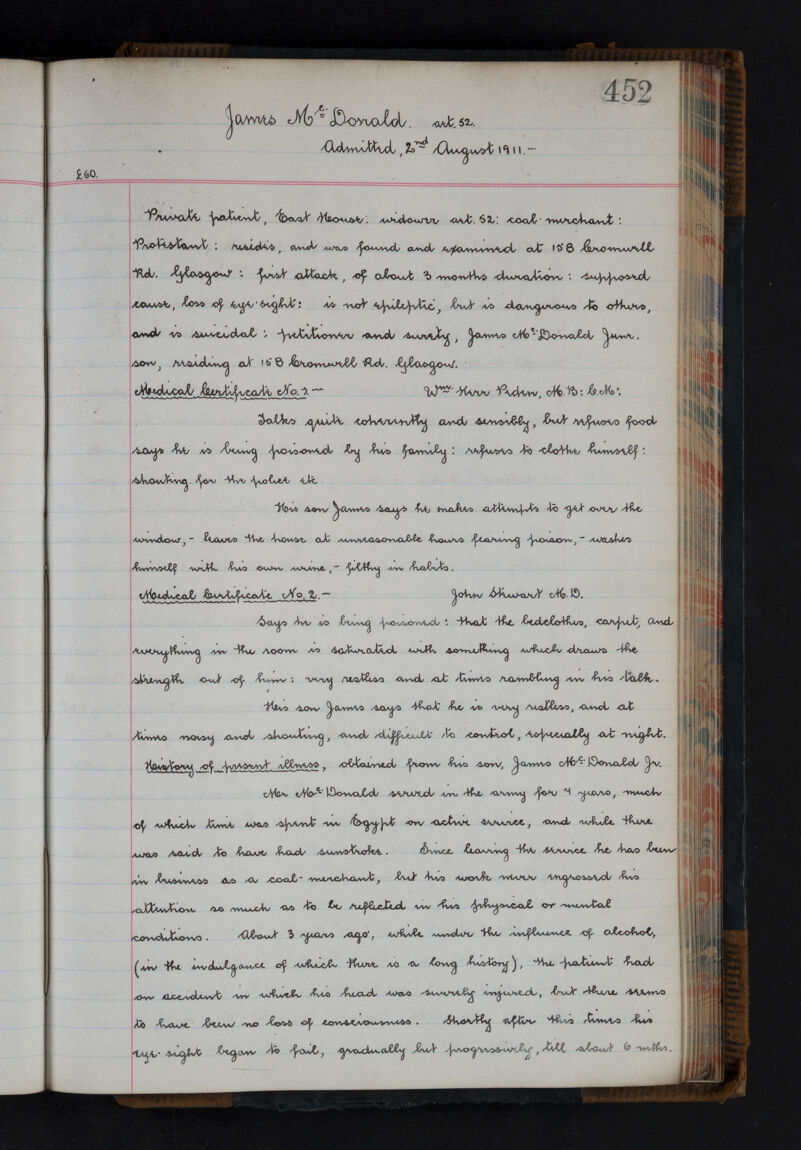 452
James Mc. Donald. aet. 52.
Admitted, 2nd August 1911.—
£60.
Private patient, East House: widower aet. 52: coal-merchant:
Protestant: resides, and was found and examined at 158 Cromwell
Rd. Glasgow: first attack, of about 3 months duration: supposed
cause, loss of eye-sight: is not epileptic, but is dangerous to others,
and is suicidal: petitioner and surety, James Mc. Donald Junr.
son, residing at 158 Cromwell Rd. Glasgow.
Medical Certificate No. 1.— Wm. Kerr Peden, M.B: C.M:
Talks quite coherently and sensibly, but refuses food
says he is being poisoned by his family: refuses to clothe himself:
shouting for the police etc.
His son James says he makes attempts to get over the
window,- leaves the house at unreasonable hours fearing poison,- washes
himself with his own urine,- filthy in habits.
Medical Certificate No. 2.— John Stewart M.D.
Says he is being poisoned: that the bedclothes, carpet, and
everything in the room is saturated with something which draws the
strength out of him: very restless and at times rambling in his talk.
His son James says that he is very restless, and at
times noisy and shouting, and difficult to control, especially at night.
History of present illness, obtained from his son, James Mc. Donald Jr.
Mr Mc. Donald served in the army for 7 years, much
of which time was spent in Egypt on active service, and while there
was said to have had sunstroke. Since leaving the service he has been
in business as a coal-merchant, but his work never engrossed his
attention so much as to be reflected in his physical or mental
conditions. About 3 years ago, while under the influence of alcohol,
(in the indulgance of which there is a long history), the patient had
an accident in which his head was severely injured, but there seems
to have been no loss of consciousness. Shortly after this times his
eye-sight began to fail, gradually but progressively, till about 6 mths.